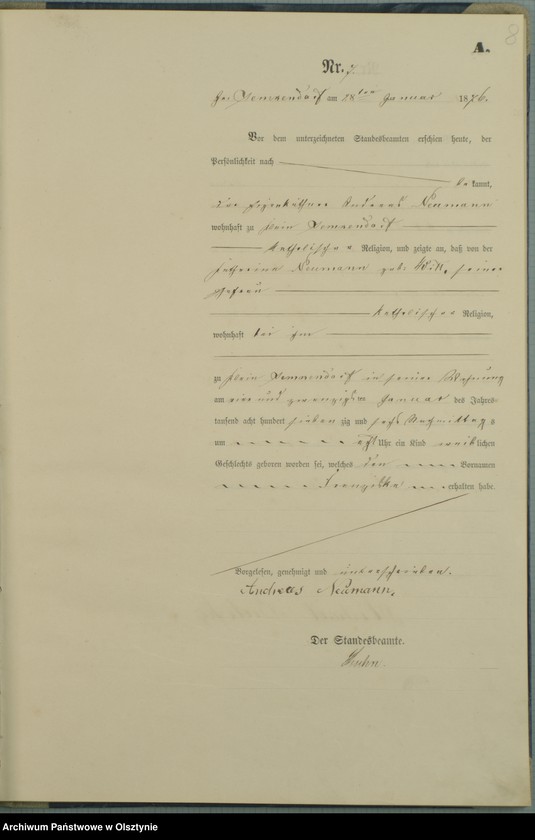 8
A.
Nr. 7.
am 28ten Januar 1876.
Vor dem unterzeichneten Standesbeamten erschien heute, der
Persönlichkeit nach
bekannt,
der Andreas Neumann
wohnhaft zu Klein
katholischer Religion, und zeigte an, daß von der
Katherina Neumann geb. Witt, seiner
Ehefrau
katholischer Religion,
wohnhaft bei ihm
zu Klein in seiner Wohnung
am ein und zwanzigsten Januar des Jahres
tausend acht hundert siebenzig und sechs Nachmittags
um acht Uhr ein Kind weiblichen
Geschlechts geboren worden sei, welches den Vornamen
Franziska erhalten habe.
Vorgelesen, genehmigt und unterschrieben.
Andreas Neumann,
Der Standesbeamte.
Archiwum Państwowe w Olsztynie